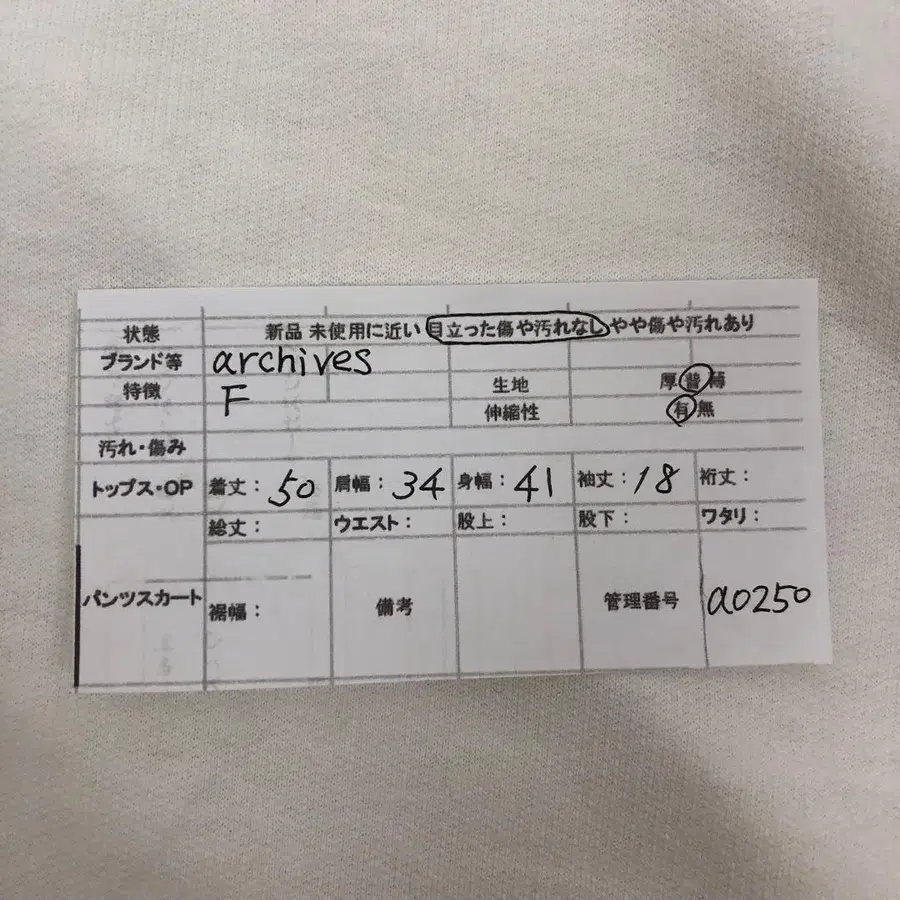 状態 新品 未使用に近い 目立った傷や汚れなし やや傷や汚れあり
ブランド等 archives
特徴 F 生地 厚 普 薄
伸縮性 有 無
汚れ・傷み
トップス・OP 着丈: 50 肩幅: 34 身幅: 41 袖丈: 18 裄丈:
総丈: ウエスト: 股上: 股下: ワタリ:
パンツスカート 裾幅: 備考 管理番号 a0250